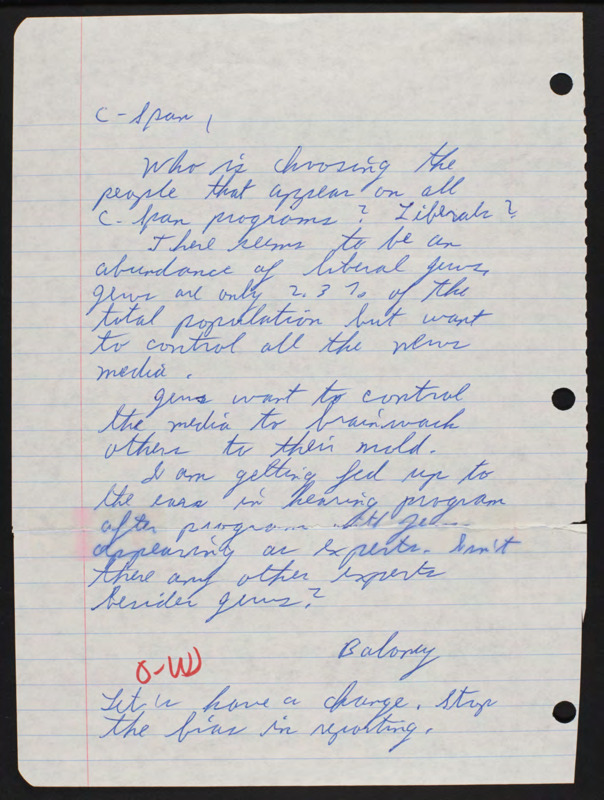 C-Span,
Who is choosing the
people that appear on all
C-Span programs? Liberals?
There seems to be an
abundance of liberal jews.
jews are only 2.3% of the
total population but want
to control all the news
media.
jews want to control
the media to brainwash
others to their mold.
I am getting fed up to
the ears in hearing program
after program
appearing as experts. Isn't
there any other experts
besides jews?
Baloney
O-W
Let us have a change. Stop
the bias in reporting.